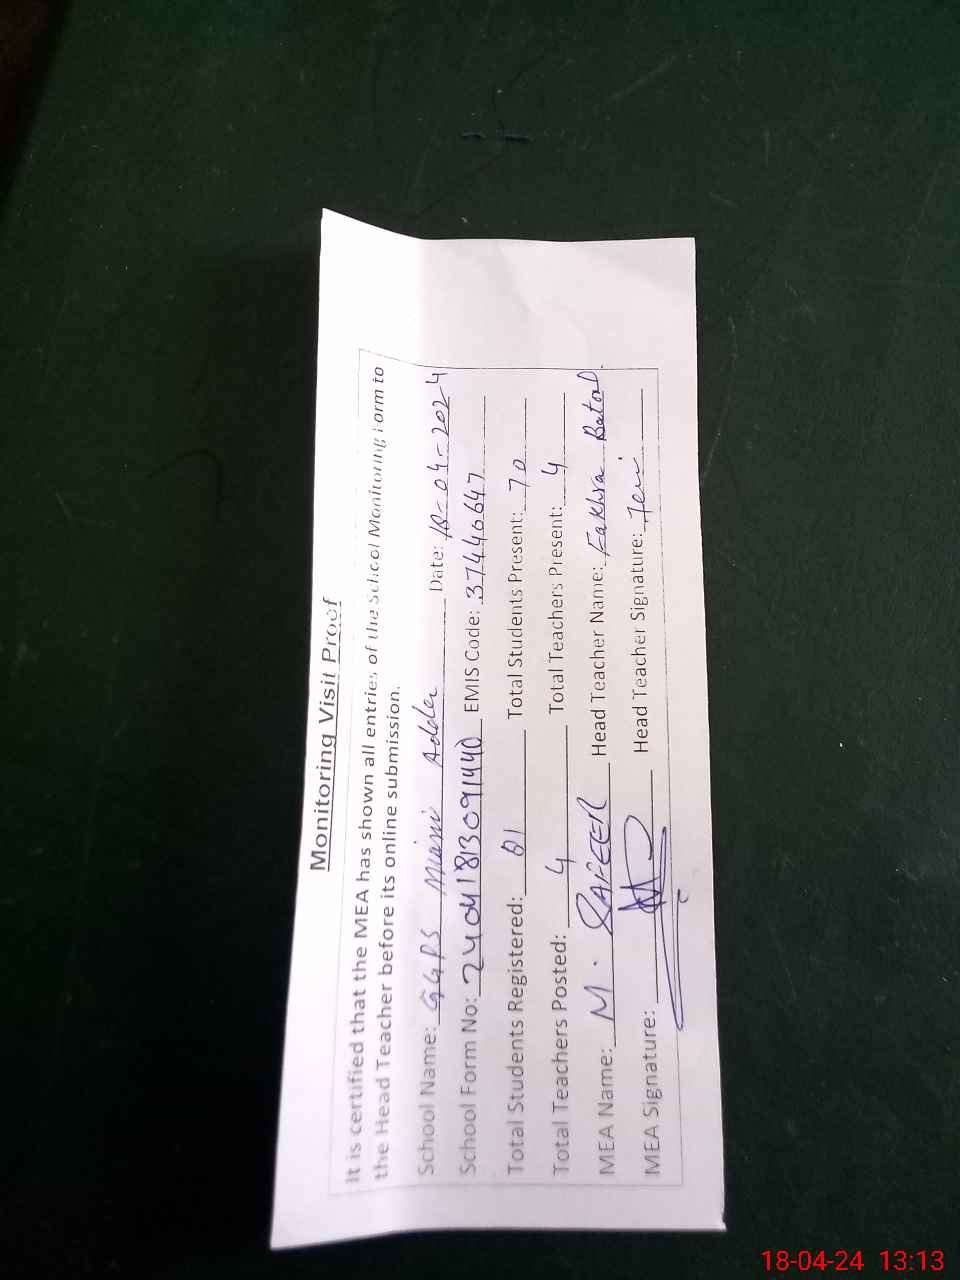 Monitoring Visit Proof
It is certified that the MEA has shown all entries of the School Monitoring Form to
the Head Teacher before its online submission.
School Name: GGPS Miani Adda Date: 18-04-2024
School Form No: 24041813091440 EMIS Code: 37446647
Total Students Registered: 81 Total Students Present: 70
Total Teachers Posted: 4 Total Teachers Present: 4
MEA Name: M. SAFEER Head Teacher Name: Fakhra Batool
MEA Signature: Head Teacher Signature:
18-04-24 13:13